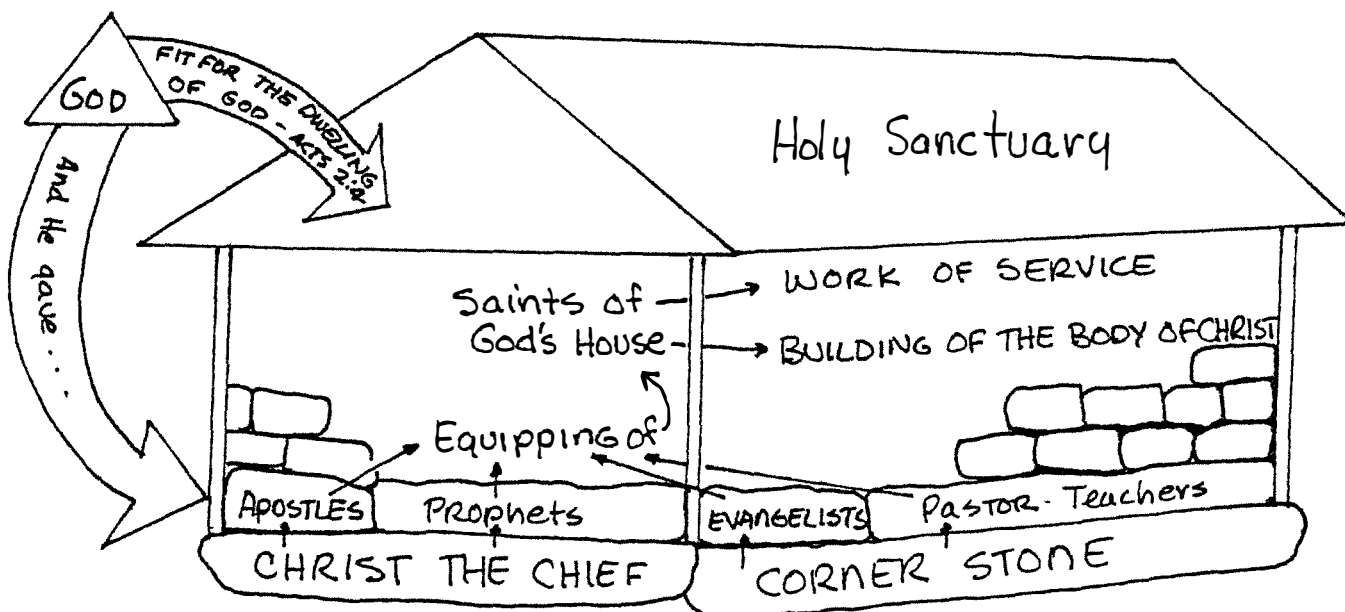 GOD
FIT FOR THE DWELLING
OF GOD - ACTS
And He gave...
Holy Sanctuary
Saints of
God's House
WORK OF SERVICE
BUILDING OF THE BODY OF CHRIST
Equipping of
APOSTLES
Prophets
EVANGELISTS
Pastor-Teachers
CHRIST THE CHIEF
CORNER STONE